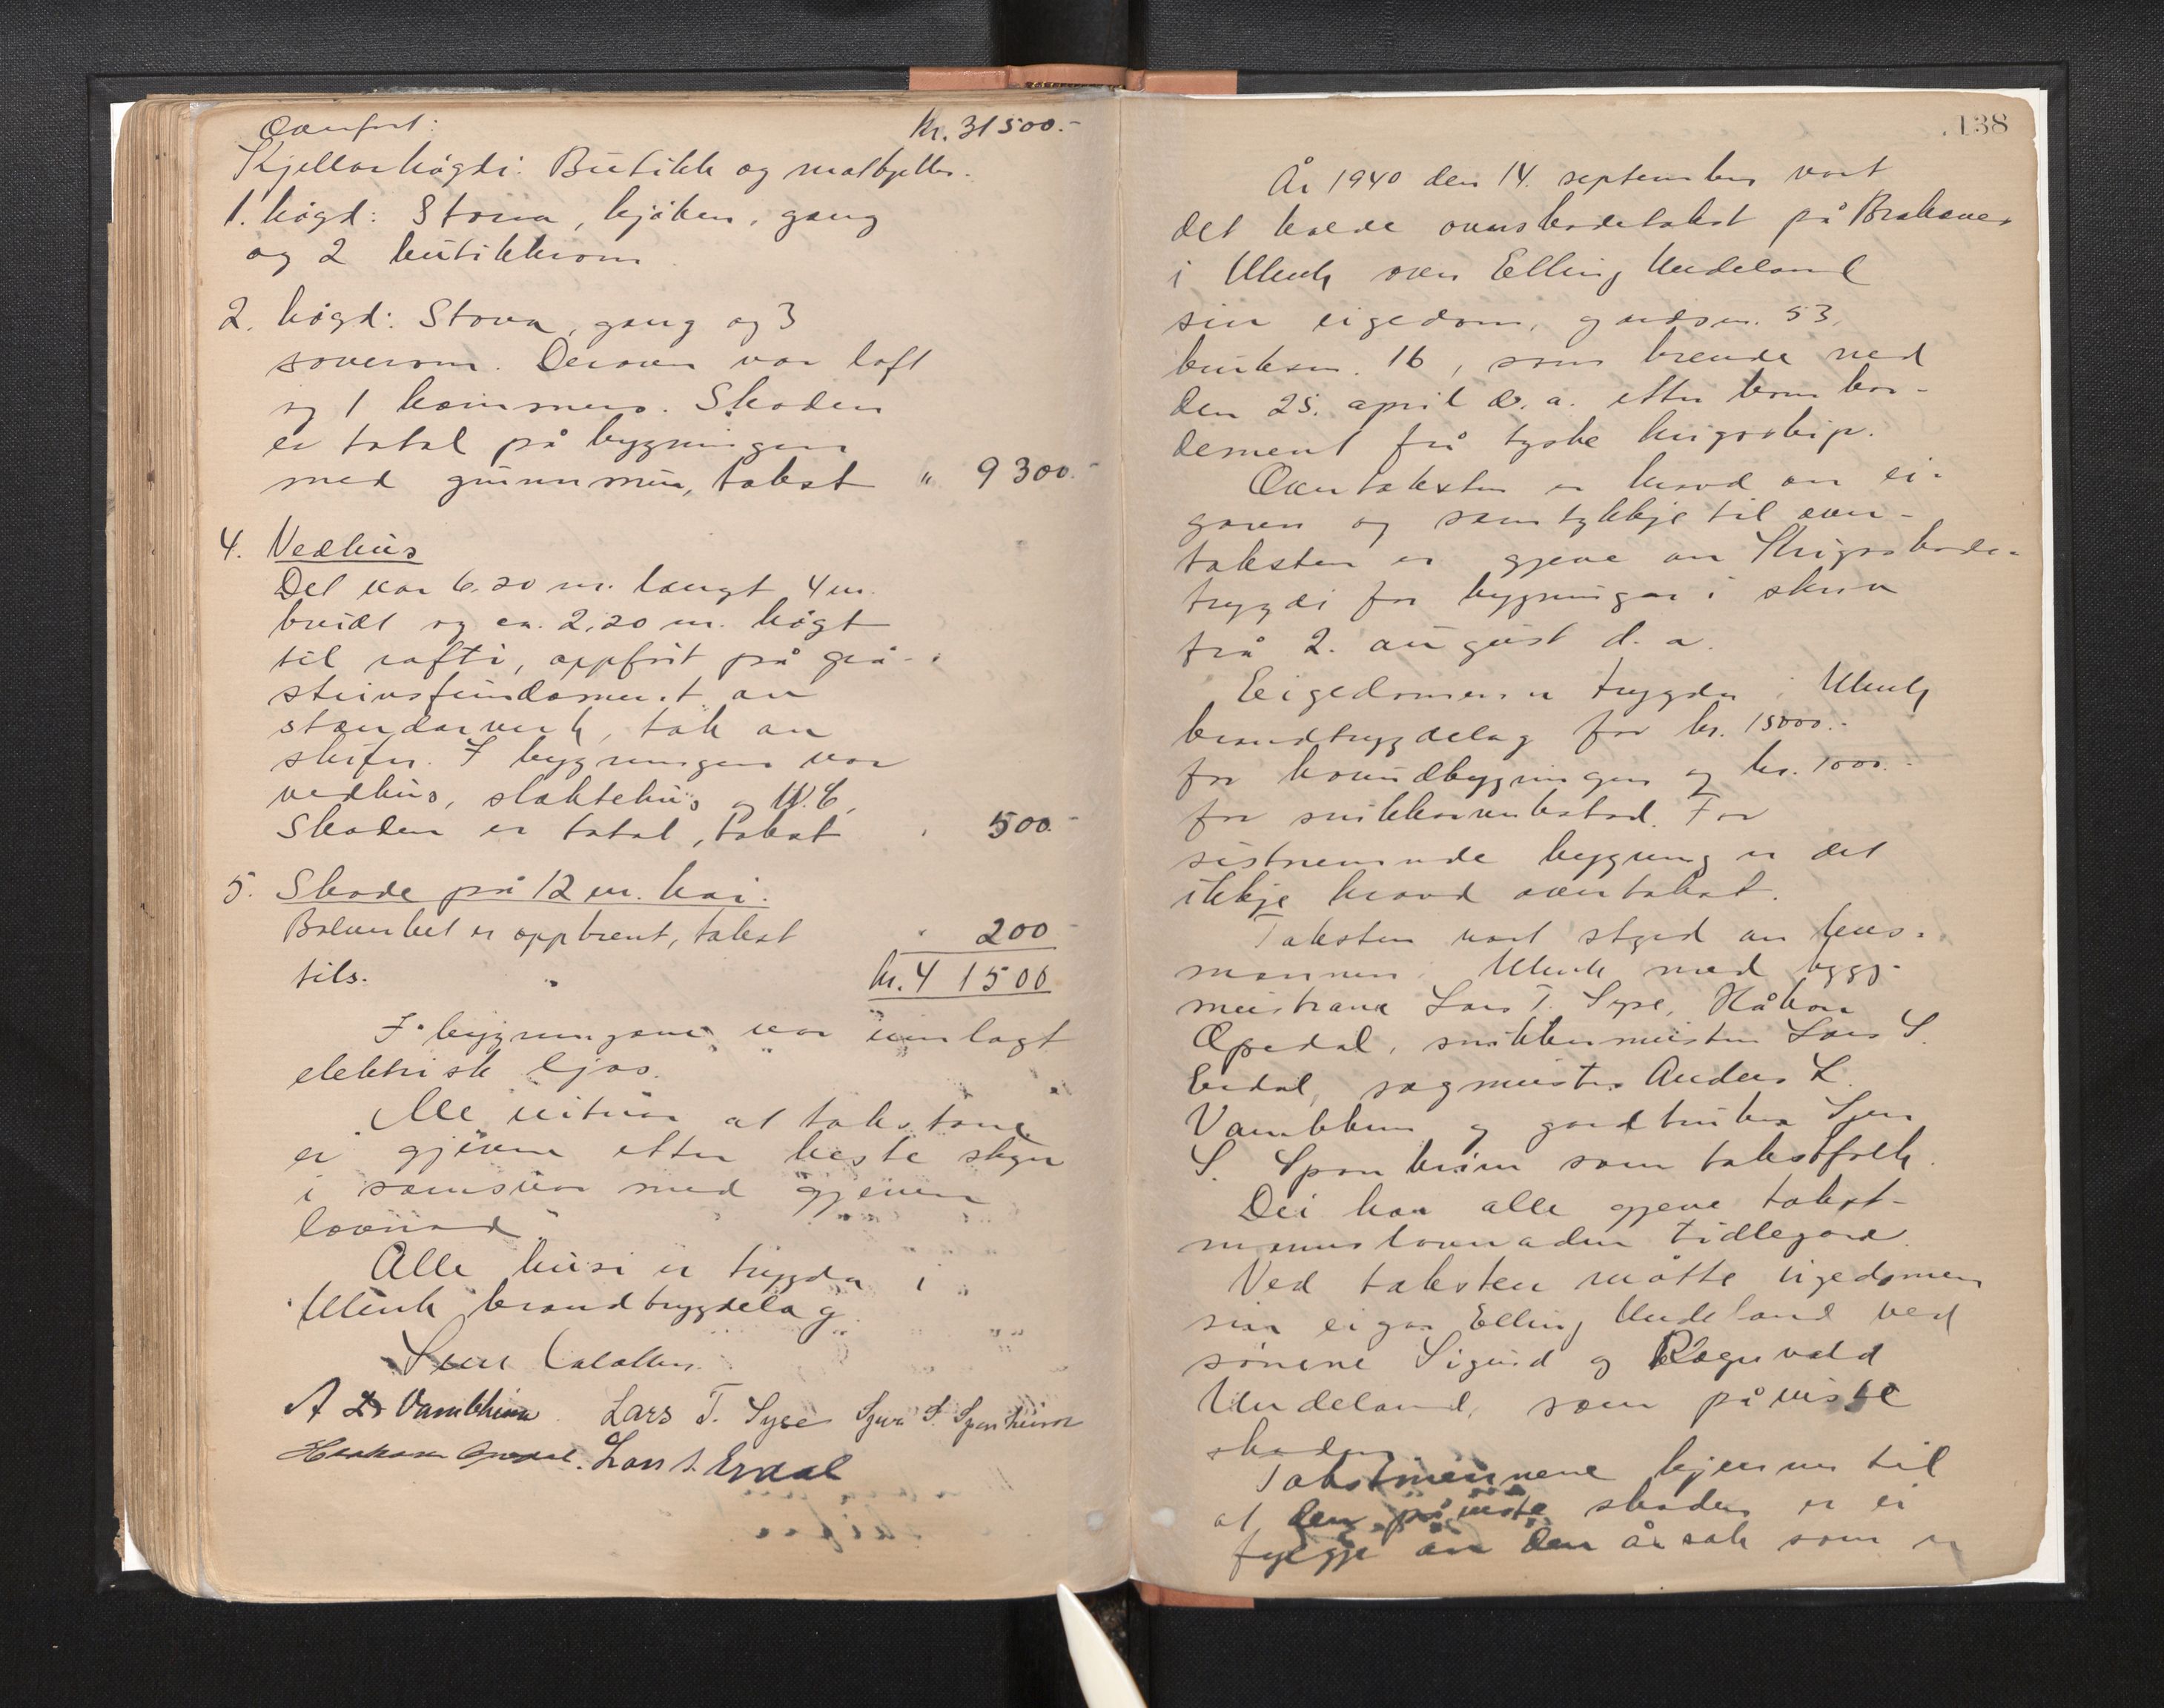 Overført: kr. 31500.-
Kjellarhøgdi: Butikk og matkjeller.
1. høgd: Stova, kjøken, gang
og 2 butikkrom
2. høgd: Stova, gang og 3
soverom. Derover var loft
og 1 kammers. Skaden
er total på bygningen
med grunnmur, takst " 9300.-
4. Vedhus
Det var 6.20 m. langt 4 m.
breidt og ca. 2,20 m. høgt
til rafti, oppført på grå-
steinsfundament av
standarverk, tak av
skifer. I bygningen var
vedhus, slaktehus og W.C.
Skaden er total, takst " 500.-
5. Skade på 12 m. kai.
Bolverket er oppbrent, takst " 200-
tils. kr. 41500
I bygningane var innlagt
elektrisk ljos.
Me vitnar at takstane
er gjevne etter beste skyn
i samsvar med gjeven
lovnad
Alle husi er trygda i
Ulvik brandtrygdelag
A L Vambheim Lars T. Syse Sjur S. Sponheim
Haakon Opedal. Lars S. Erdal
138
År 1940 den 14. september vart
det halde overskadetakst på Brakanes
i Ulvik over Elling Undeland
sin eigedom, gardsnr. 53,
bruksnr. 16, som brende ned
den 25. april d. a. etter bombar-
dement frå tyske krigsskip.
Overtaksten er kravd av ei-
garen og samtykkje til over-
taksten er gjeve av Krigsskade-
trygdi for bygningar i skriv
frå 2. august d. a.
Eigedomen er trygda i Ulvik
brandtrygdelag for kr. 15000.-
for hovudbygningen og kr. 1000.-
for snikkarverkstad. For
sistnemnde bygning er det
ikkje kravd overtakst.
Taksten vart styrd av lens-
mannen i Ulvik med bygg-
meistrane Lars T. Syse, Håkon
Opedal, snikkermeister Lars S.
Erdal, sagmeister Anders L.
Vambheim og gardbrukar Sjur
S. Sponheim som takstfolk.
Dei har alle gjeve takst-
mannslovnaden tidlegare.
Ved taksten møtte eigedomen
sin eigar Elling Undeland ved
sønene Sigurd og Ragnvald
Undeland, som påviste
skaden.
Takstmennene kjenner til
at den påviste skaden er ei
fylgje av den årsak som er